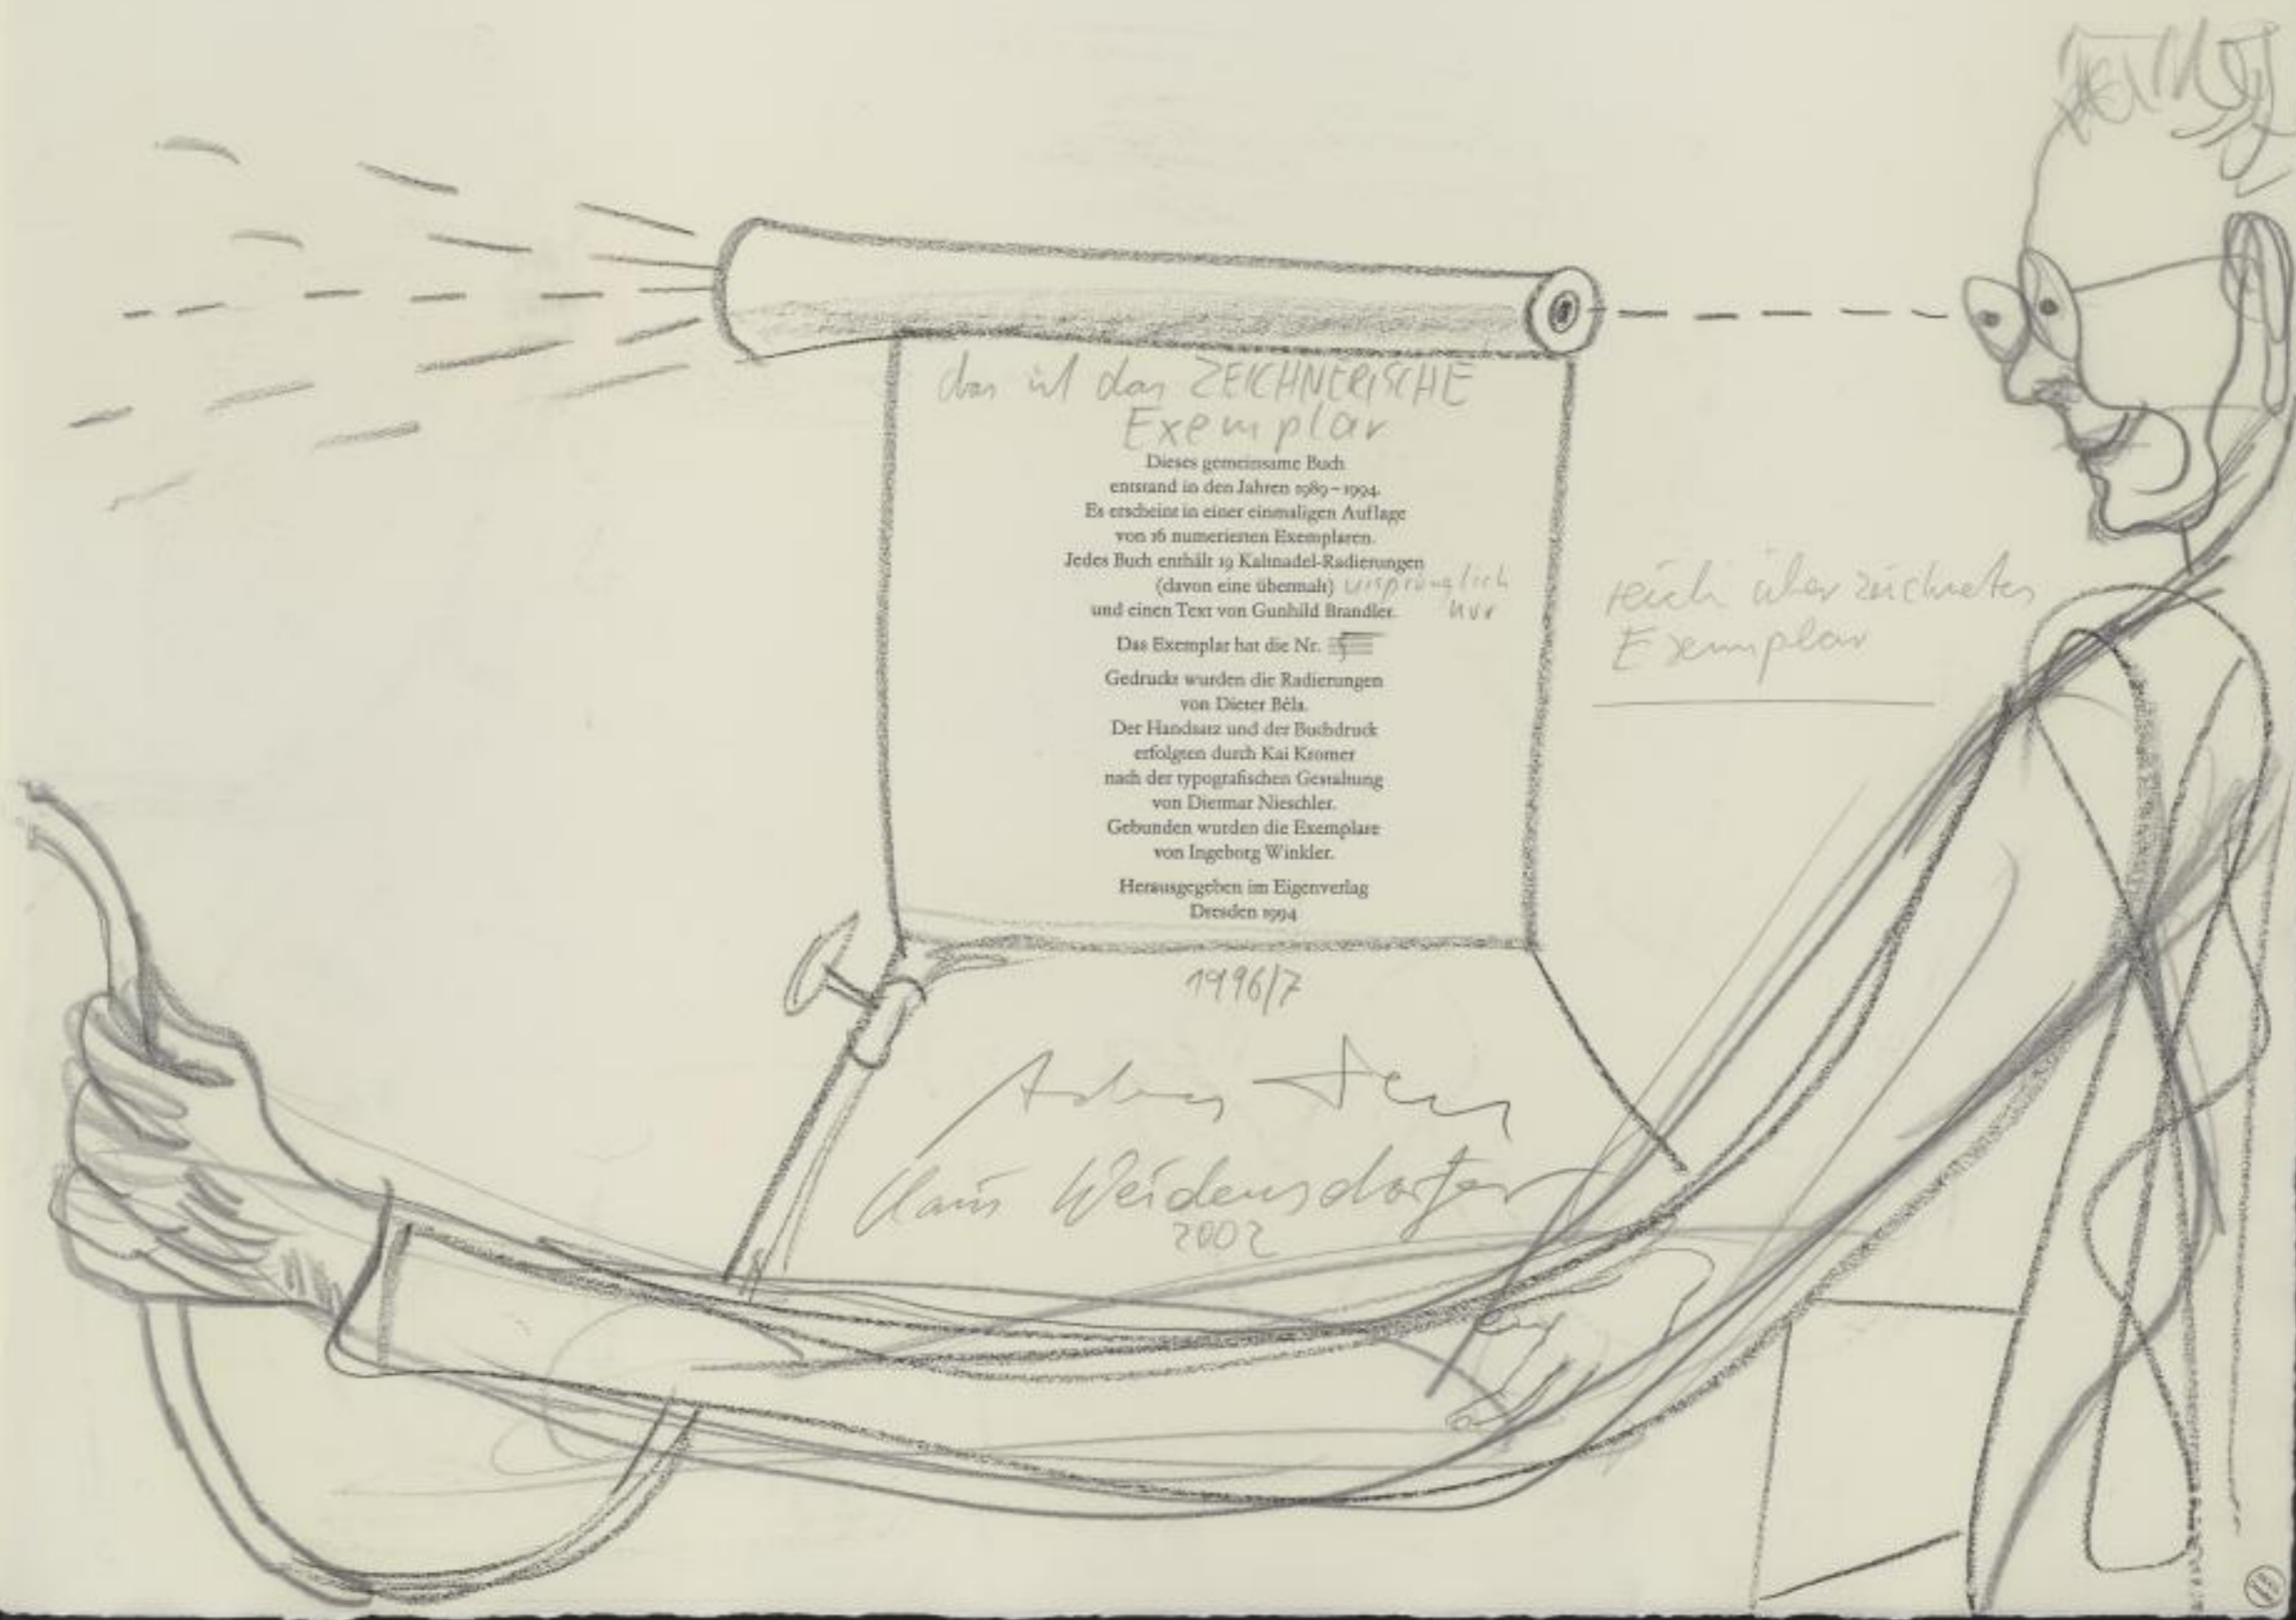 das ist das ZEICHNERISCHE
Exemplar
Dieses gemeinsame Buch
entstand in den Jahren 1989–1994.
Es erscheint in einer einmaligen Auflage
von 16 numerierten Exemplaren.
Jedes Buch enthält 19 Kaltnadel-Radierungen
(davon eine übermalt) ursprünglich
und einen Text von Gunhild Brandler. nur
Das Exemplar hat die Nr. 5
reich überzeichnetes
Exemplar
Gedruckt wurden die Radierungen
von Dieter Béla.
Der Handsatz und der Buchdruck
erfolgten durch Kai Kromer
nach der typografischen Gestaltung
von Dietmar Nieschler.
Gebunden wurden die Exemplare
von Ingeborg Winkler.
Herausgegeben im Eigenverlag
Dresden 1994
1996/7
Claus Weidensdorfer
2002